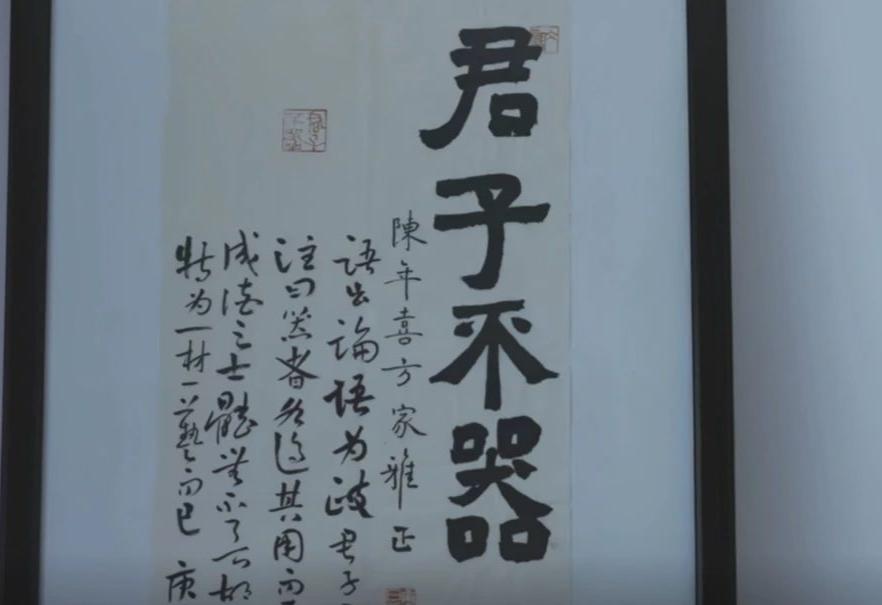 君子不器
陳年喜方家雅正
语出論语为政君子
注曰器者各適其用而
成德之士體無不
特为一材一藝而已 庚